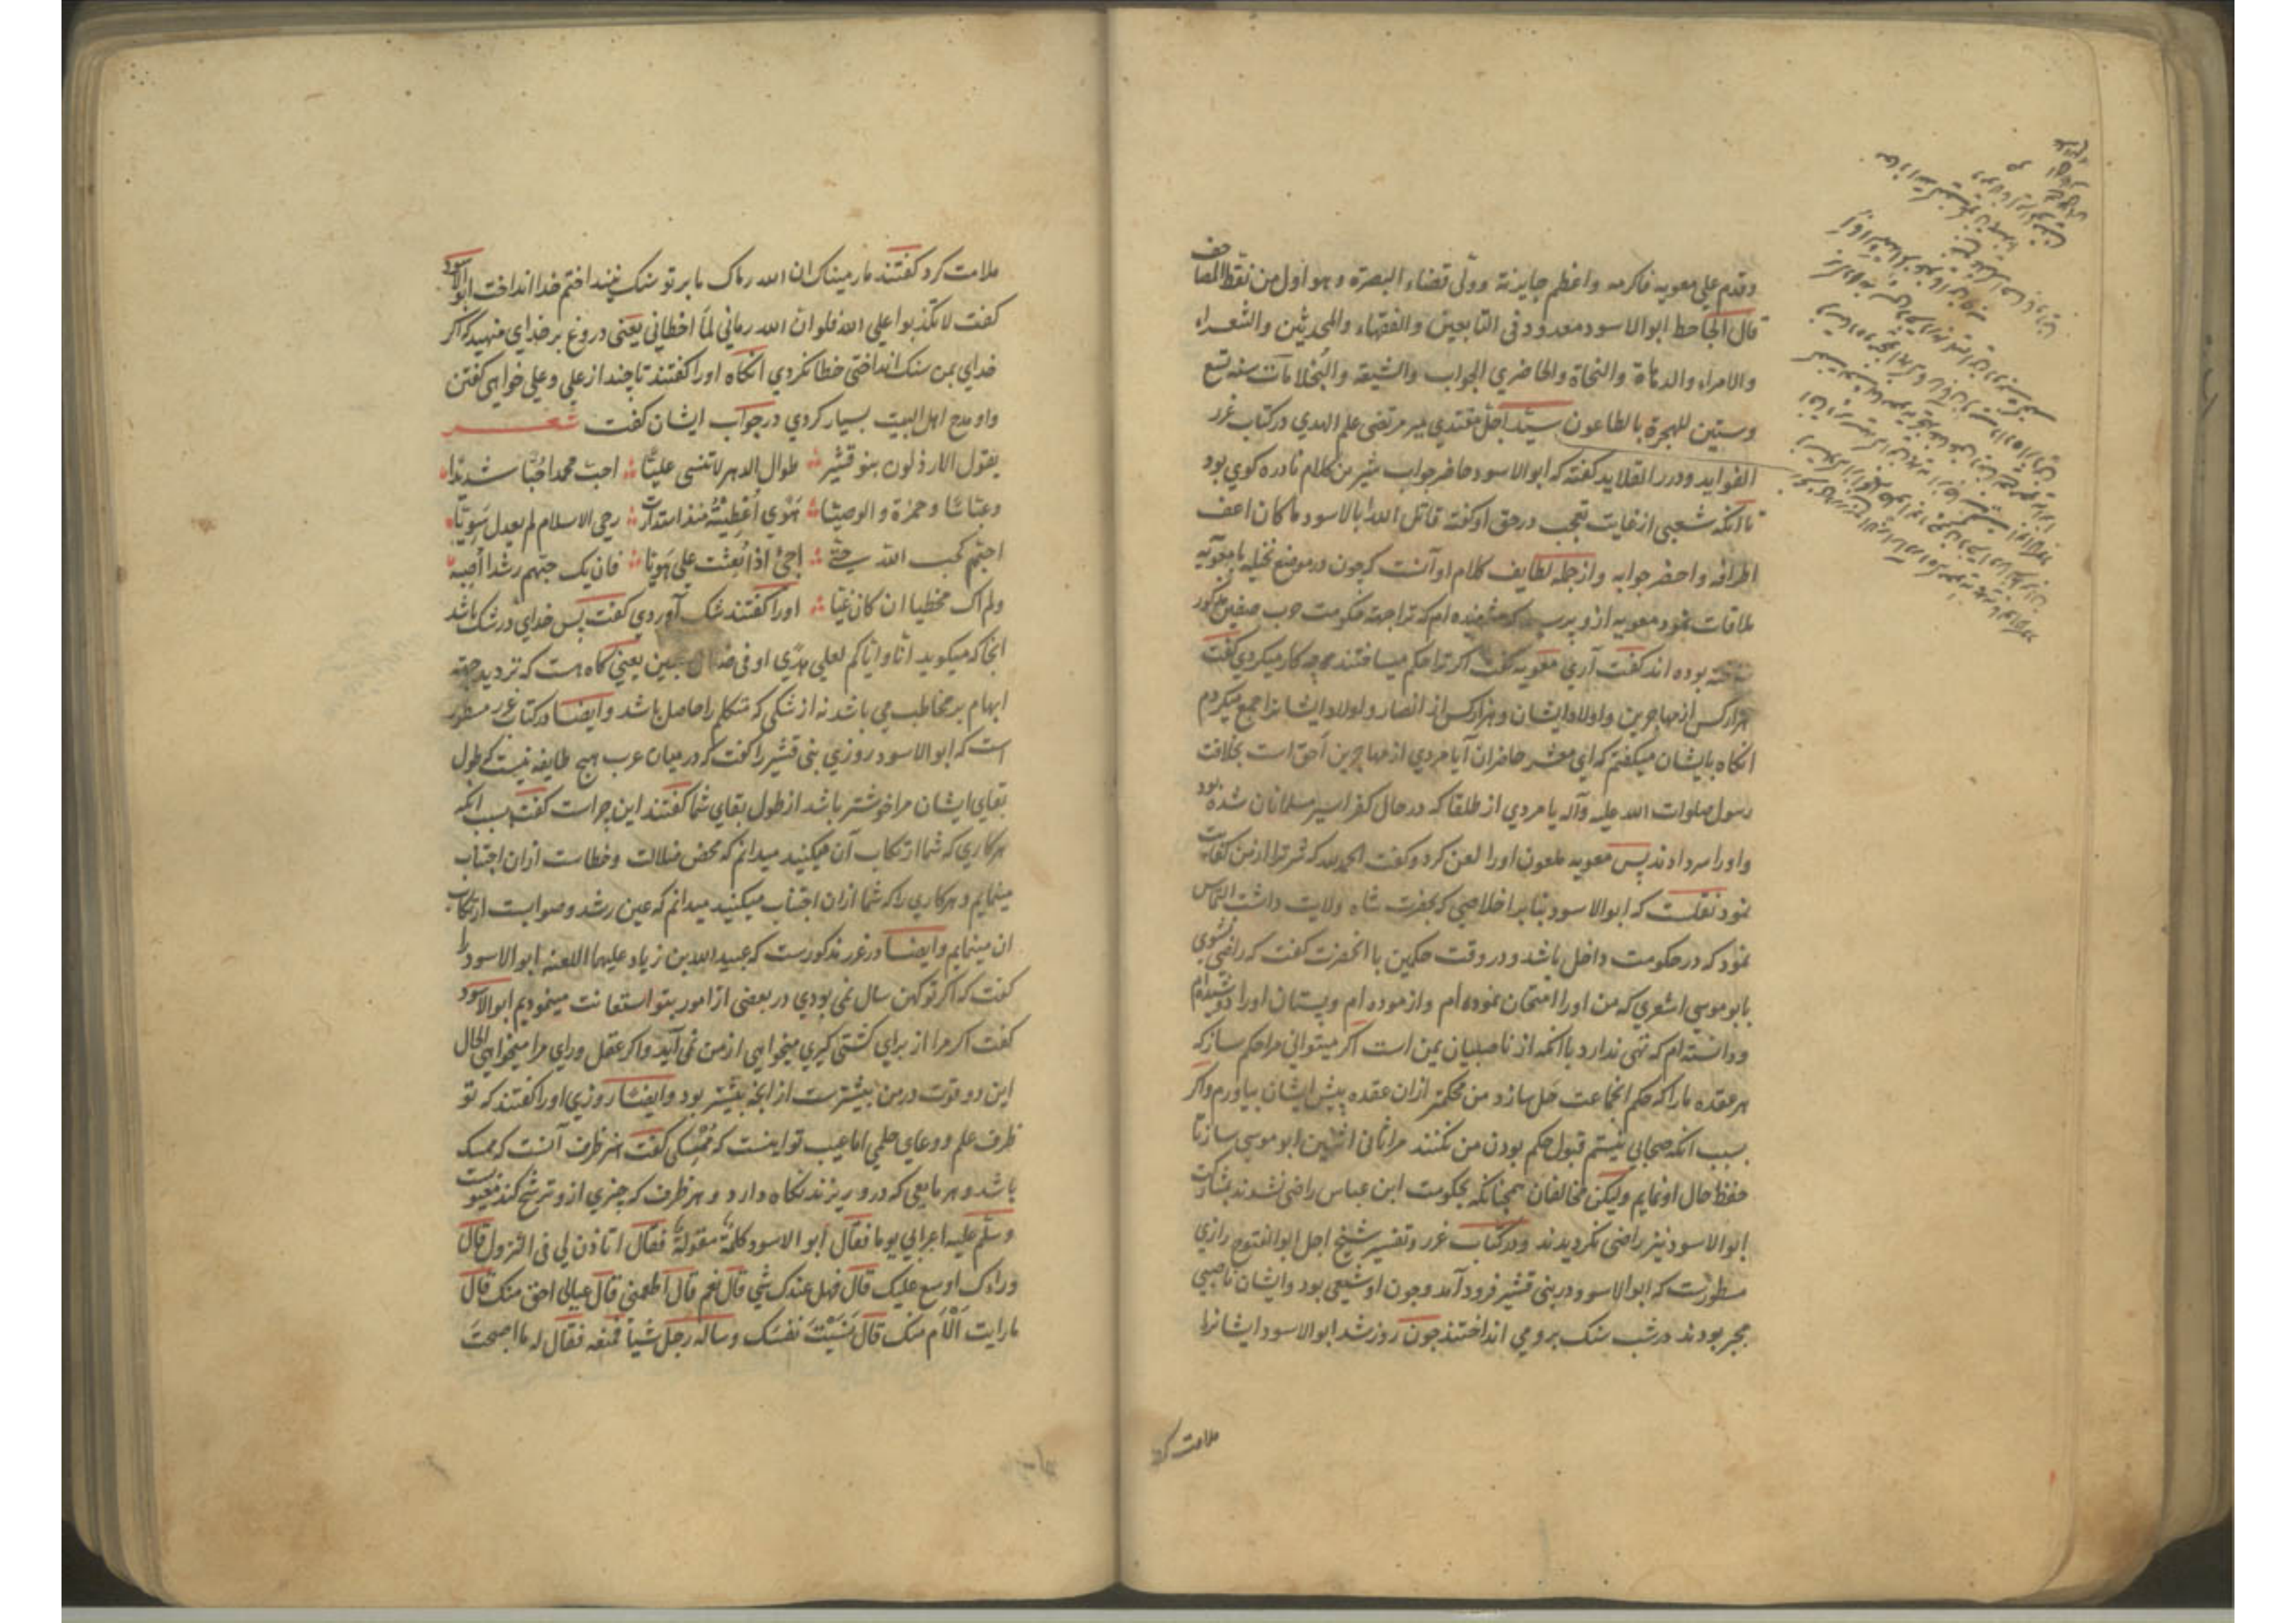 وقدم علی معویه فاکرمه واعظم جایزته وولی قضاء البصرة وهو اول من نقط المصاحف
قال الجاحظ ابوالاسود معدود فی التابعین والفقهاء والمحدثین والشعراء
والامراء والدهاة والنحاة والحاضری الجواب والشیعة والبخلا مات سنه تسع
وستین للهجرة بالطاعون سید اجل مقتدی میر مرتضی علم الهدی در کتاب غرر
الفواید ودرر القلاید کفته که ابوالاسود حاضر جواب شیرین کلام نادره کوی بود
تا انکه شعبی از غایت تعجب در حق او کفته قاتل الله ابا الاسود ما کان اعف
اطرافه واحضر جوابه واز جمله لطایف کلام او آنست که چون در موضع نخیله با معویه
ملاقات نمود معویه ازو پرسید که شنیده ام که ترا جهة حکومت حرب صفین مذکور
ساخته بوده اند کفت آری معویه کفت اکر ترا حکم میساختند چه کار میکردی کفت
هزار کس از مهاجرین واولاد ایشان وهزار کس از انصار واولاد ایشانرا جمع میکردم
انکاه بایشان میکفتم که ای معشر حاضران آیا مردی از مهاجرین احق است بخلافت
رسول صلوات الله علیه وآله یا مردی از طلقا که در حال کفر اسیر مسلمانان شده بود
واورا سر دادند پس معویه ملعون اورا لعن کرد وکفت الحمد لله که شر ترا از من کفایت
نمود نقلست که ابوالاسود بنابر اخلاصی که بحضرت شاه ولایت داشت التماس
نمود که در حکومت داخل باشد ودر وقت حکمین با انحضرت کفت که راضی نشوی
بابو موسی اشعری که من اورا امتحان نموده ام وازموده ام وپستان اورا دوشیده ام
ودانسته ام که تهی ندارد با انکه از ناصبیان یمن است اکر میتوانی مرا حکم ساز که
هر عقده را که حکم انجماعت حل سازد من محکمتر ازان عقده پیش ایشان بیاورم واکر
بسبب انکه صحابی نیستم قبول حکم بودن من نکنند مرا ثانی اثنین ابو موسی ساز تا
حفظ حال او نمایم ولیکن مخالفان همچنانکه بحکومت ابن عباس راضی نشدند بمشارکت
ابوالاسود نیز راضی نکردیدند ودر کتاب غرر وتفسیر شیخ اجل ابوالفتوح رازی
مسطورست که ابوالاسود در بنی قشیر فرود آمد وچون او شیعی بود وایشان ناصبی
مجبر بودند در شب سنک بر وی می انداختند چون روز شد ابوالاسود ایشانرا
ملامت کرد
ملامت کرد کفتند ما رمیناک ان الله رماک ما بر تو سنک نینداختیم خدا انداخت ابوالاسود
کفت لا تکذبوا علی الله فلوان الله رمانی لما اخطانی یعنی دروغ بر خدای منهید که اکر
خدای بمن سنک انداختی خطا نکردی انکاه اورا کفتند تا چند از علی وعلی خواهی کفتن
واو مدح اهل البیت بسیار کردی در جواب ایشان کفت شعر
یقول الارذلون بنو قشیر طوال الدهر لاتنسی علیا احب محمدا حبا شدیدا
وعباسا وحمزة والوصیا هوی اعطیته منذ استدارت رحی الاسلام لم یعدل سویا
احبهم کحب الله حتی اجئ اذا بعثت علی هویا فان یک حبهم رشدا اصبه
ولم اک مخطیا ان کان غیا اورا کفتند شک آوردی کفت پس خدای در شک باشد
انجا که میکوید انا وایاکم لعلی هدی او فی ضلال مبین یعنی کاه هست که تردید جهة
ابهام بر مخاطب می باشد نه از شکی که متکلم را حاصل باشد وایضا در کتاب غرر مسطور
است که ابوالاسود روزی بنی قشیر را کفت که در میان عرب هیچ طایفه نیست که طول
بقای ایشان مرا خوشتر باشد از طول بقای شما کفتند این چراست کفت بسبب انکه
هر کاری که شما ارتکاب آن میکنید میدانم که محض ضلالت وخطاست ازان اجتناب
مینمایم وهر کاری را که شما ازان اجتناب میکنید میدانم که عین رشد وصوابست ارتکاب
ان مینمایم وایضا در غرر مذکورست که عبید الله بن زیاد علیهما اللعنه ابوالاسود را
کفت که اکر تو کهن سال نمی بودی در بعضی از امور بتو استعانت مینمودیم ابوالاسود
کفت اکر مرا از برای کشتی کیری میخواهی از من نمی آید واکر عقل ورای مرا میخواهی الحال
این دو قوت در من بیشترست از انچه پیشتر بود وایضا روزی اورا کفتند که تو
ظرف علم ووعای حلمی اما عیب تو اینست که ممسکی کفت هنر ظرف آنست که ممسک
باشد وهر مایعی که درو ریزند نکاه دارد وهر ظرف که چیزی ازو ترشح کند معیوبست
وسلم علیه اعرابی یوما فقال ابو الاسود کلمة مقولة فقال اتاذن لی فی النزول قال
وراءک اوسع علیک قال فهل عندک شی قال نعم قال اطعمنی قال عیالی احق منک قال
ما رایت الام منک قال نسیت نفسک وساله رجل شیا فمنعه فقال له ما اصبحت